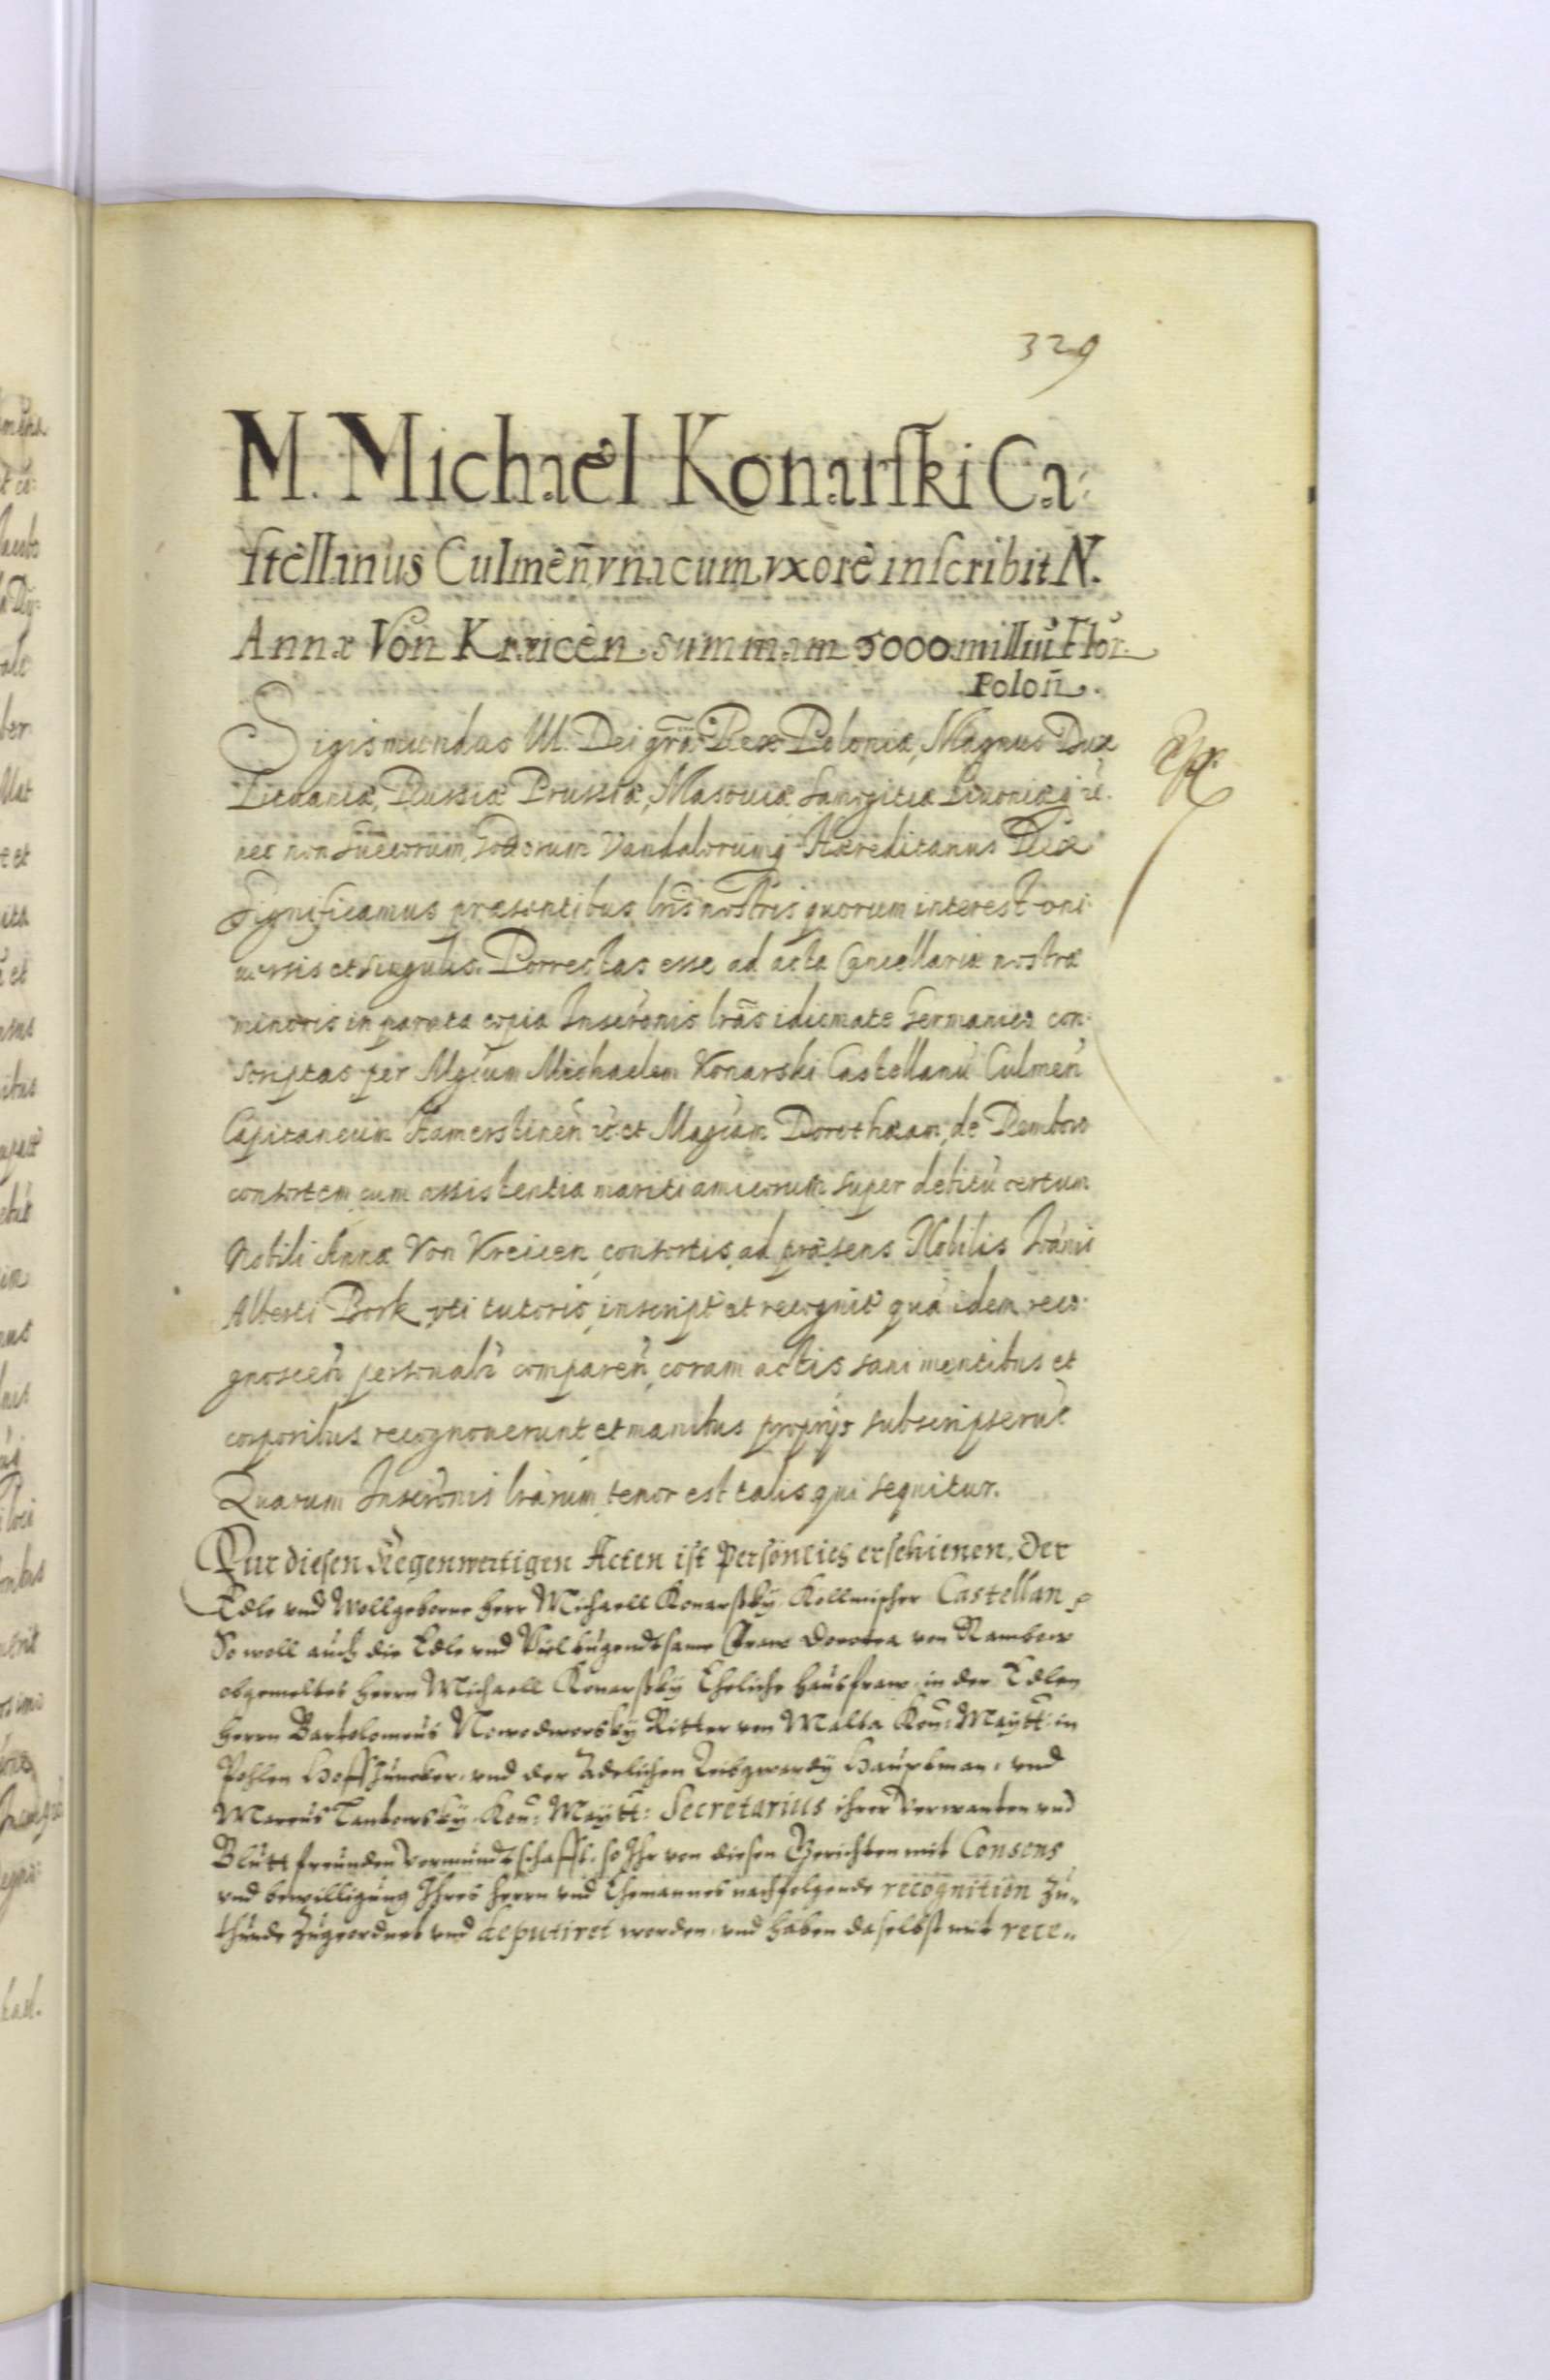 329
M. Michaël Konarski Ca-
stellanus Culmeñ vnacum vxore inscribit N.
Annæ Von Kreicen summam 5000 milliũ Flor.
Poloñ.
Sigismundus III. Dei grã Rex Poloniæ, Magnus Dux
Lituaniæ, Russiæ Prussiæ, Masouiæ Samogitiæ Liuoniæq; et.
nec non Suecorum, Gottorum Vandalorumq; Hæreditarius Rex
Significamus præsentibus lris nostris quorum interest vni-
uersis et singulis. Porrectas esse ad acta Cancellariæ nostræ
minoris in parata copia Inscronis lras idiomate Germanico con-
scriptas per Mgcum Michaelem Konarski Castellanũ Culmeñ
Capitaneum Hamerstineñ et. et Magcam Dorothæam, de Rembow
consortem cum assistentia mariti amicorum super debitũ certum
Nobili Annæ Von Kreicen, consortis ad præsens Nobilis Joãnis
Alberti Bork, vti tutoris, inscript et recognit quã idem reco-
gnosceñ personalr compareñ, coram actis sani mentibus et
corporibus recognouerunt et manibus proprijs subscripserũt
Quarum Inscronis lrarum tenor est talis qui sequitur.
Fur diesen Kegenwertigen Acten ist Persönlich erschienen, Der
Edle vnd Wollgeborne Herr Michaell Konarßky Kollmischer Castellan
So woll auch die Edle vnd Vieltugendtsame Fraw Dorotea von Rambow
obgemeltes Herrn Michaell Konarßky Eheliche haüsfraw, in der Edlen
Herrn Bartolomeus Nowodworsky Ritter von Malta Kön: Maytt: in
Pohlen Hoffjuncker, vnd der Adelichen Leibgwardy Hauptman, vnd
Marcus Lantowsky Kön: Maytt: Secretarius ihrer Verwanten vnd
Blütt freunden Vormundtschafft, so Ihr von diesen Gerichten mit Consens
vnd bewilligung Ihres Herrn vnd Ehemannes nachfolgende recognition zu-
thunde zugeordnet vnd deputiret worden, vnd haben daselbst mit rece-